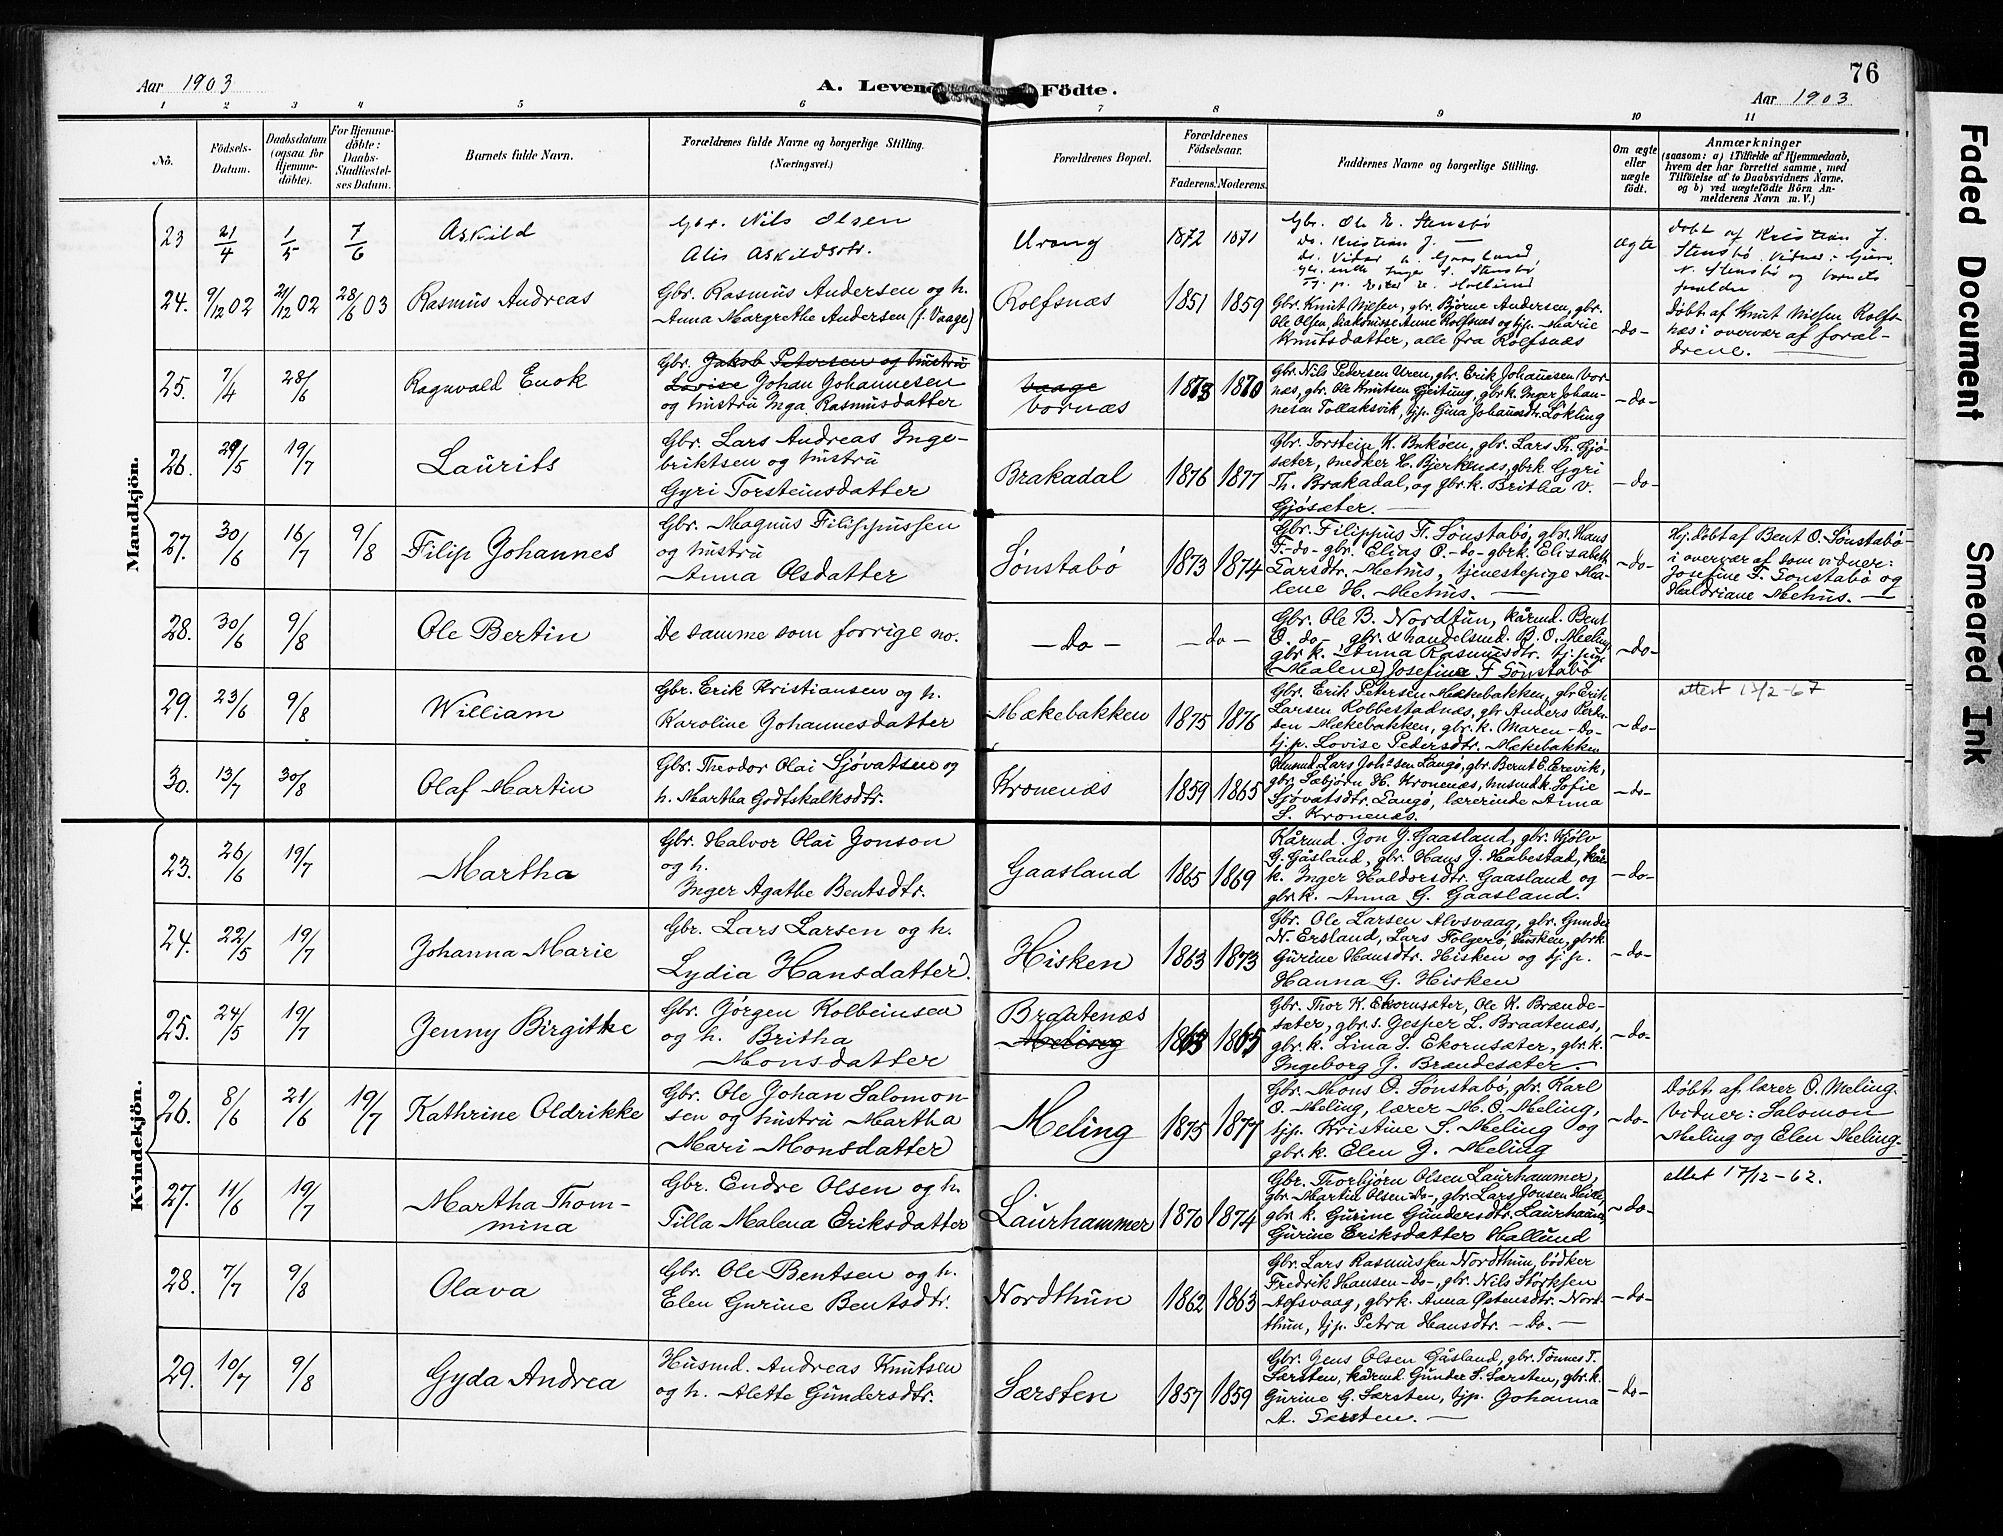 76
Aar 1903
A. Levende Födte.
Aar 1903
1 2 3 4 5 6 7 8 9 10 11
No.
Födsels-
Datum.
Daabsdatum
(ogsaa for
Hjemme-
döbte).
For Hjemme-
döbte:
Daabs-
Stadfæstel-
ses Datum.
Barnets fulde Navn.
Forældrenes fulde Navne og borgerlige Stilling.
(Næringsvei.)
Forældrenes Bopæl.
Forældrenes
Födselsaar.
Faderens. Moderens.
Faddernes Navne og borgerlige Stilling.
Om ægte
eller
uægte
födt.
Anmærkninger
(saasom: a) i Tilfælde af Hjemmedaab,
hvem der har forrettet samme, med
Tilföielse af to Daabsvidners Navne.
og b) ved uægtefödte Börn An-
melderens Navn m. V.)
Mandkjön.
23 21/4 1/5 7/6 Askild
Gbr. Nils Olsen
Alis Askildsdtr.
Urang 1872 1871
Gbr. Ole E. Stensbø
do. Kristian J. —
ægte
døbt af Kristian J.
Stensbø
24. 9/12 02 21/12 02 28/6 03 Rasmus Andreas
Gbr. Rasmus Andersen og h.
Anna Margrethe Andersen (f. Vaage)
Rolfsnæs 1851 1859
Gbr. Knut Nilsen, gbr. Bjørne Andersen, gbr.
Ole Olsen, diakonisse Anne Rolfsnæs og tjp. Marie
Knutsdatter, alle fra Rolfsnæs
-do-
Døbt af Knut Nilsen Rolfs-
næs i overvær af foræl-
drene. —
25. 7/4 28/6 Ragnvald Enok
Gbr. Jakob Petersen og hustru
Lovise Johan Johannesen
og hustru Inga Rasmusdatter
Vaage
Vornæs 1873 1870
Gbr. Nils Pedersen Uren, gbr. Erik Johannesen Vor-
næs, gbr. Ole Knutsen Geitung, gbrk. Inger Johan-
nesen Tollaksvik, tjp. Gina Johannsdtr. Løkling
-do-
26. 29/5 19/7 Laurits
Gbr. Lars Andreas Inge-
briktsen og hustru
Gyri Torsteinsdatter
Brakadal 1876 1877
Gbr. Torstein K. Bukøen, gbr. Lars Th. Gjø-
sæter, snedker H. Bjerknæs, gbrk. Gyri
Th. Brakadal, og gbr.k. Britha V.
Gjøsæter. —
-do-
27. 30/6 16/7 9/8 Filip Johannes
Gbr. Magnus Filippussen
og hustru
Anna Olsdatter
Sønstabø 1873 1874
Gbr. Filippus Fl. Sønstabø, gbr. Hans
F. -do- gbr. Elias O. -do- gbrk. Elisabeth
Larsdtr. Mehus, tjenestepige Ma-
lene H. Mehus. —
-do-
Hj. døbt af Bent O. Sønstabø
i overvær af som vidner:
Josefine F. Sønstabø og
Haldriane Mehus. —
28. 30/6 9/8 Ole Bertin
De samme som forrige no.
-do- -do-
Gbr. Ole B. Nordtun, kårmd. Bent
O. -do-, gbr. & handelsmd. B. O. Meling
gbr.k. Anna Rasmusdtr. tj. pige
(Malene) Josefine F Sønstabø
-do-
29. 23/6 9/8 William
Gbr. Erik Kristiansen og h.
Karoline Johannesdatter
Mækebakken 1875 1876
Gbr. Erik Petersen Mækebakken, gbr Erik
Larsen Robbestadnæs, gbr. Anders Peder-
sen Mækebakken, gbr.k. Maren -do-
tj.p. Lovise Pedersdtr. Mækebakken
-do-
attest 13/2-67
30. 13/7 30/8 Olaf Martin
Gbr. Theodor Olai Sjøvatsen og
h. Martha Godtskalksdtr.
Kronenæs 1859 1865
Husmd. Lars Johsen Langø, gbr. Bernt E. Erevik,
gbr. Sæbjørn H. Kronenæs, husmd.k. Sofie
Sjøvatsdtr. Langø, lærerinde Anna
S. Kronenæs.
-do-
Kvindekjön.
23. 26/6 19/7 Martha
Gbr. Halvor Olai Jonson
og h.
Inger Agathe Bentsdtr.
Gaasland 1865 1869
Kårmd. Jon J. Gaasland, gbr. Kjølv
G. Gåsland, gbr. Hans J. Habestad, kår
k. Inger Haldorsdtr. Gaasland og
gbr.k. Anna G. Gaasland.
-do-
24. 22/5 19/7 Johanna Marie
Gbr. Lars Larsen og h.
Lydia Hansdatter.
Hisken 1863 1873
Gbr. Ole Larsen Alvsvaag, gbr. Gunder
N. Ersland, Lars Folgerø, Hisken, gbrk.
Gurine Hansdtr. Hisken og tj.p.
Hanna G. Hisken
-do-
25. 24/5 19/7 Jenny Birgitte
Gbr. Jørgen Kolbeinsen
og h. Britha
Monsdatter
Braatenæs
Meling 1863 1865
Gbr. Thor K. Ekornsæter, Ole K. Brande-
sæter, gbr.s. Jesper L. Braatenæs,
gbr.k. Lina S. Ekornsæter, gbr.k.
Ingeborg J. Brandesæter. —
-do-
26. 8/6 21/6 19/7 Kathrine Oldrikke
Gbr. Ole Johan Salomon-
sen og hustru Martha
Mari Monsdatter
Meling 1875 1877
Gbr. Mons O. Sønstabø, gbr. Karl
O. Meling, lærer M. O. Meling,
tjp. Kristine S. Meling og
gbr.k. Elen J. Meling
-do-
Døbt af lærer O. Meling.
Vidner: Salomon
Meling og Elen Meling.
27. 11/6 19/7 Martha Thom-
mina
Gbr. Endre Olsen og h.
Tilla Malena Eriksdatter
Laurhammer 1870 1874
Gbr. Thorbjørn Olsen Laurhammer,
gbr. Martin Olsen -do-, gbr. Lars Jonsen Heide,
gbr.k. Gurine Gundersdtr. Laurhammer,
Gurine Eriksdatter Hallund
-do-
attest 17/12-62.
28. 7/7 9/8 Olava
Gbr. Ole Bentsen og h.
Elen Gurine Bentsdtr.
Nordthun 1862 1863
Gbr. Lars Rasmussen Nordthun, bødker
Fredrik Hansen -do-, gbr. Nils Størksen
Alfsvaag, gbrk. Anna Østensdtr. Nord-
thun, tjp. Petra Hansdtr. -do. —
-do-
29. 10/7 9/8 Gyda Andrea
Husmd. Andreas Knutsen
og h. Alette Gundersdtr.
Særsten 1857 1859
Gbr. Jens Olsen Gåsland, gbr. Tønnes T.
Særsten, kårmd. Gunder S. Særsten, gbr.k.
Gurine G. Særsten, tjp. Johanna
A. Særsten. —
-do-
Faded Document
Smeared Ink